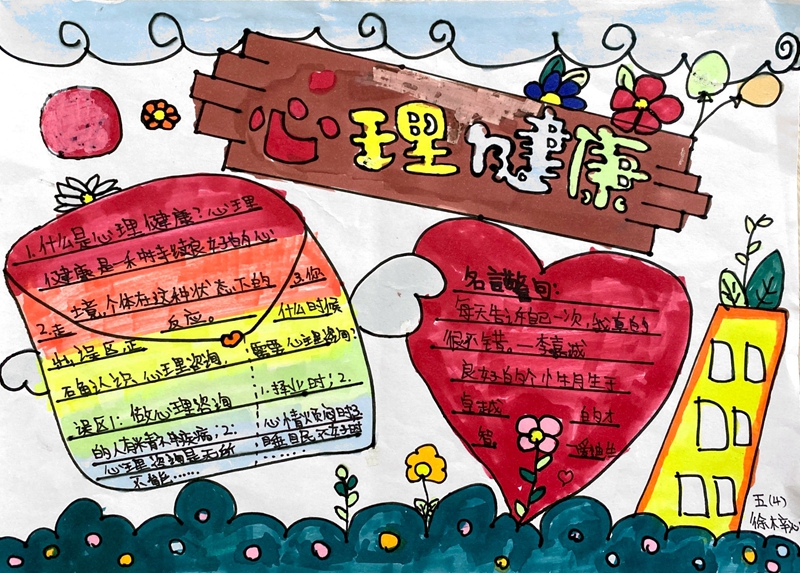 心理健康
1.什么是心理健康?心理
健康是一种较良好的心
境,个体在这种状态下的
反应。
2.走
出误区,正
确认识心理咨询,
误区1:做心理咨询
的人有精神疾病;2:
心理咨询是无所
不能……
3.你
什么时候
需要心理咨询?
1.择业时;2.
心情烦闷时;3.
睡眠不好时
名言警句:
每天告诉自己一次,我真的
很不错。—李嘉诚
良好的个性由于
卓越 的才
智
五(4)